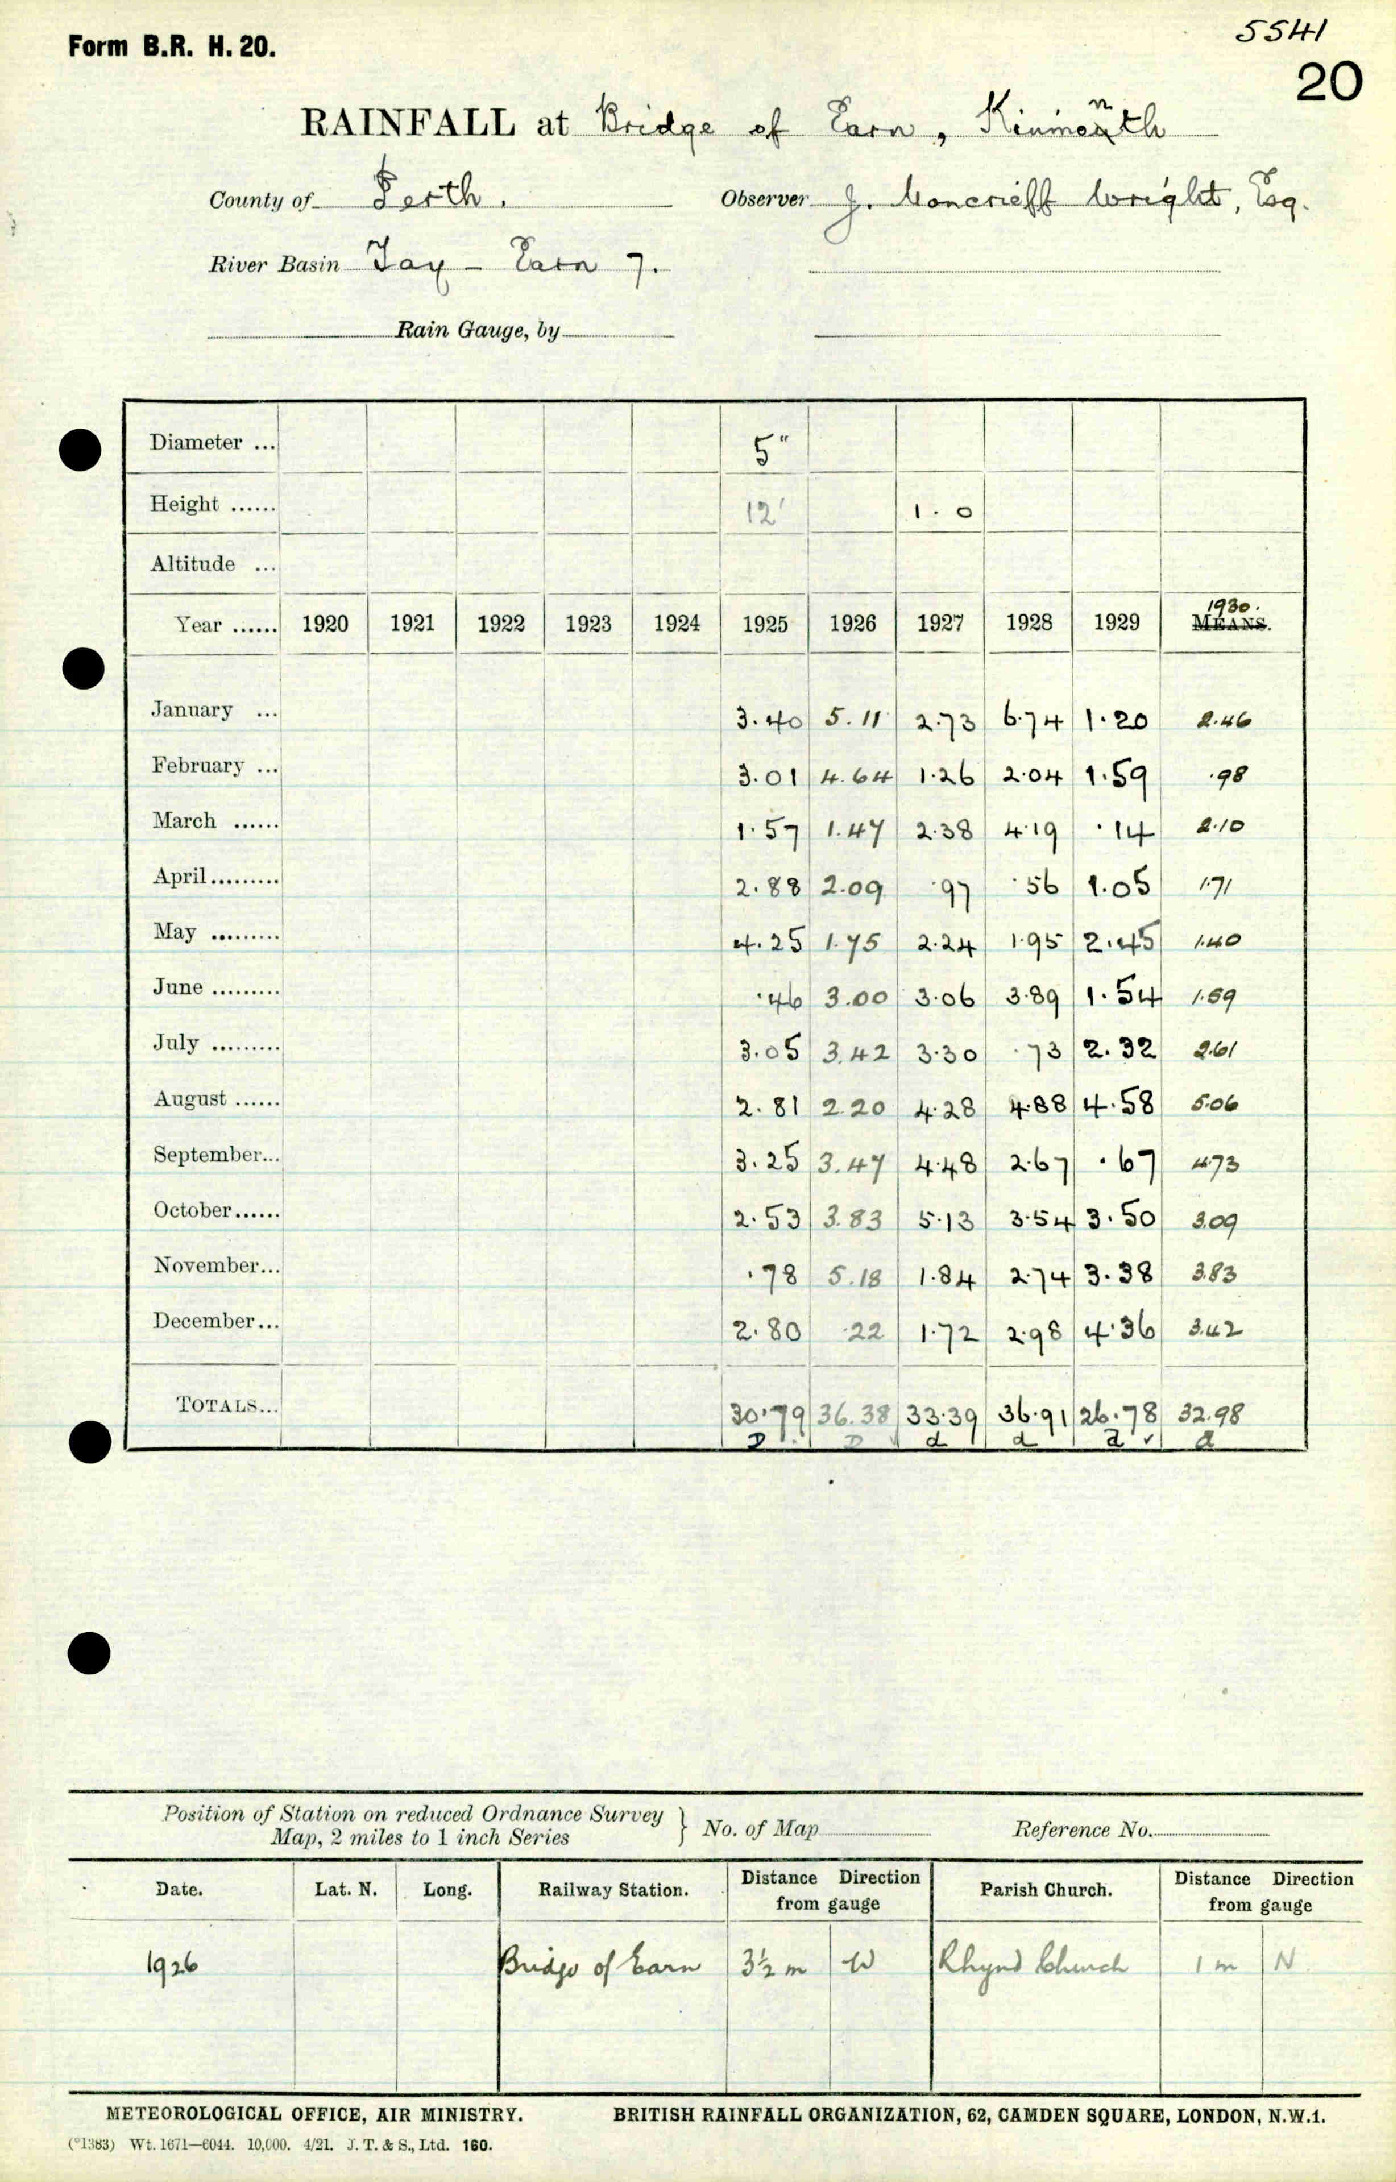 5541
Form B.R. H. 20.
20
RAINFALL at Bridge of Earn, Kinmonth
County of Perth. Observer J. Moncrieff Wright, Esq.
River Basin Tay - Earn 7.
Rain Gauge, by
Diameter ... 5"
Height ...... 12' 1.0
Altitude ...
1930.
Year ...... 1920 1921 1922 1923 1924 1925 1926 1927 1928 1929 MEANS.
January ... 3.40 5.11 2.73 6.74 1.20 2.46
February ... 3.01 4.64 1.26 2.04 1.59 .98
March ...... 1.57 1.47 2.38 4.19 .14 2.10
April......... 2.88 2.09 .97 .56 1.05 1.71
May ......... 4.25 1.75 2.24 1.95 2.45 1.40
June ......... .46 3.00 3.06 3.89 1.54 1.59
July ......... 3.05 3.42 3.30 .73 2.32 2.61
August ...... 2.81 2.20 4.28 4.88 4.58 5.06
September... 3.25 3.47 4.48 2.67 .67 4.73
October...... 2.53 3.83 5.13 3.54 3.50 3.09
November... .78 5.18 1.84 2.74 3.38 3.83
December... 2.80 .22 1.72 2.98 4.36 3.42
TOTALS... 30.79 36.38 33.39 36.91 26.78 32.98
D D d d d d
Position of Station on reduced Ordnance Survey
Map, 2 miles to 1 inch Series } No. of Map Reference No.
Date. Lat. N. Long. Railway Station. Distance Direction from gauge Parish Church. Distance Direction from gauge
1926 Bridge of Earn 3½ m W Rhynd Church 1 m N
METEOROLOGICAL OFFICE, AIR MINISTRY. BRITISH RAINFALL ORGANIZATION, 62, CAMDEN SQUARE, LONDON, N.W.1.
(*1383) Wt. 1671—6044. 10,000. 4/21. J. T. & S., Ltd. 160.